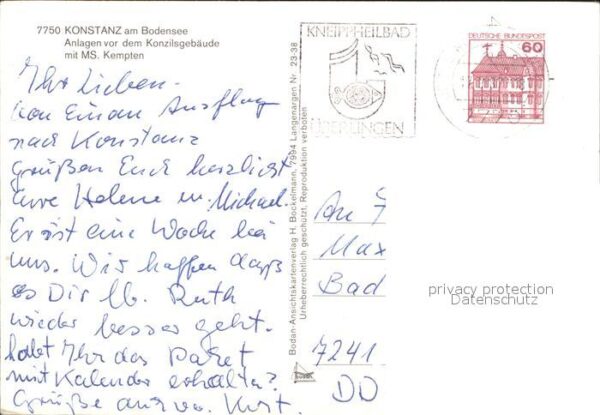 7750 KONSTANZ am Bodensee
Anlagen vor dem Konzilsgebäude
mit MS. Kempten
Ihr Lieben.
Von einem Ausflug
nach Konstanz
grüßen Euch herzlichst
Eure Helene m. Michael.
Er ist eine Woche bei
uns. Wir hoffen daß
es Dir lb. Ruth
wieder besser geht.
habt Ihr das Paket
mit Kalender erhalten?
Grüße aus
Bodan-Ansichtskartenverlag H. Bockelmann, 7994 Langenargen Nr. 23-38
Urheberrechtlich geschützt. Reproduktion verboten
KNEIPPHEILBAD
ÜBERLINGEN
DEUTSCHE BUNDESPOST
60
An
Max
Bad
7241
privacy protection
Datenschutz